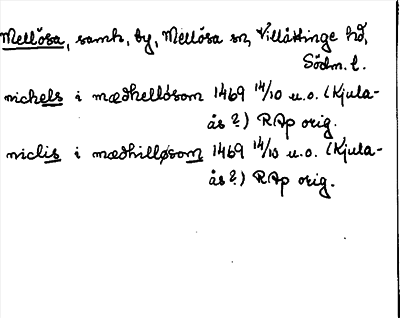 Mellösa, samh, by, Mellösa sn, Villåttinge hd,
Södm. l.
nickels i mædhelløsom 1469 14/10 u.o. (Kjula-
ås?) RAp orig.
niclis i mædhilløsom 1469 14/10 u.o. (Kjula-
ås?) RAp orig.